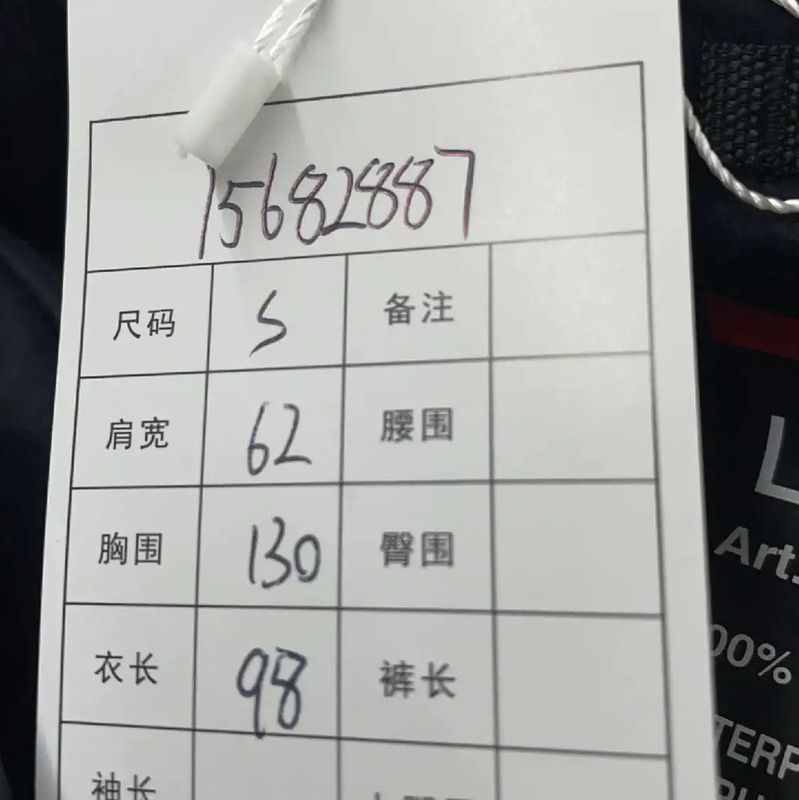 15682887
尺码 S 备注
肩宽 62 腰围
胸围 130 臀围
衣长 98 裤长
袖长
L
Art.
00%
TERP